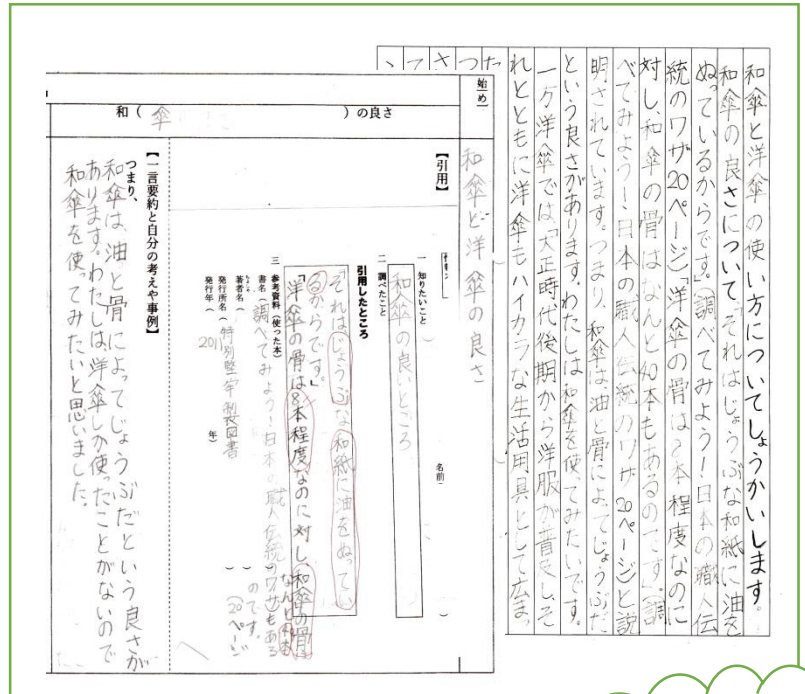 和傘と洋傘の使い方についてしょうかいします。
和傘の良さについて、「それはじょうぶな和紙に油を
ぬっているからです。」(調べてみよう！日本の職人伝
統のワザ20ページ)「洋傘の骨は8本程度なのに
対し、和傘の骨はなんと40本もあるのです」(調
べてみよう！日本の職人伝統のワザ20ページ)と説
明されています。つまり、和傘は油と骨によってじょうぶだ
という良さがあります。わたしは和傘を使ってみたいです。
一方洋傘では「大正時代後期から洋服が普及し、そ
れとともに洋傘もハイカラな生活用具として広まっ
始め
和傘と洋傘の良さ
和（傘）の良さ
【引用】
名前（　）
一　知りたいこと
和傘の良いところ
二　調べたこと
引用したところ
「それはじょうぶな和紙に油をぬってい
るからです。」
「洋傘の骨は8本程度なのに対し和傘の骨は
なんと40本
もある
のです。
（20ページ
三　参考資料（使った本）
書名（調べてみよう！日本の職人伝統のワザ）
著者名（　）
発行所名（特別堅牢製図書）
発行年（2011年）
【一言要約と自分の考えや事例】
つまり、
和傘は、油と骨によってじょうぶだという良さが
あります。わたしは洋傘しか使ったことがないので
和傘を使ってみたいと思いました。